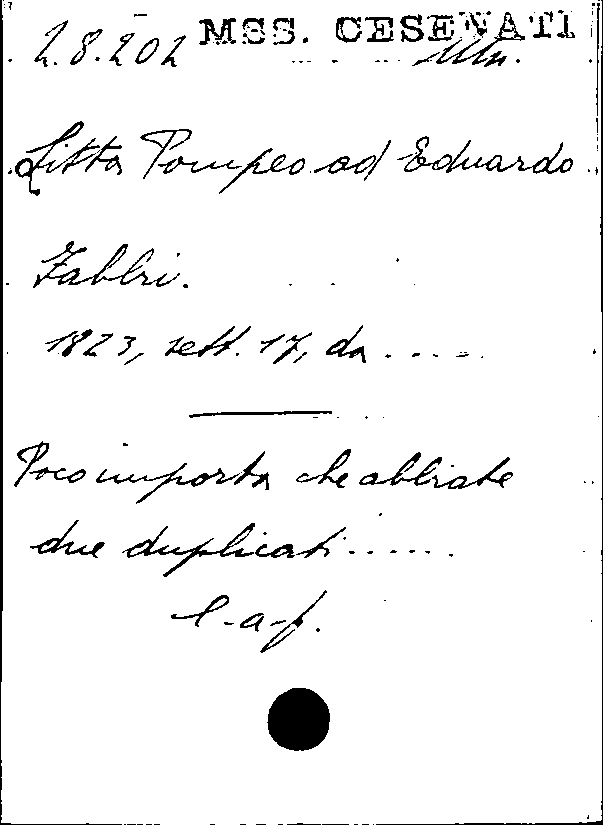 MSS. CESENATI
2.8.202 Mn.
Litta Pompeo ad Eduardo
Fabbri.
1823, sett. 17, da .....
Poco importa che abbiate
due duplicati......
l-a-f.